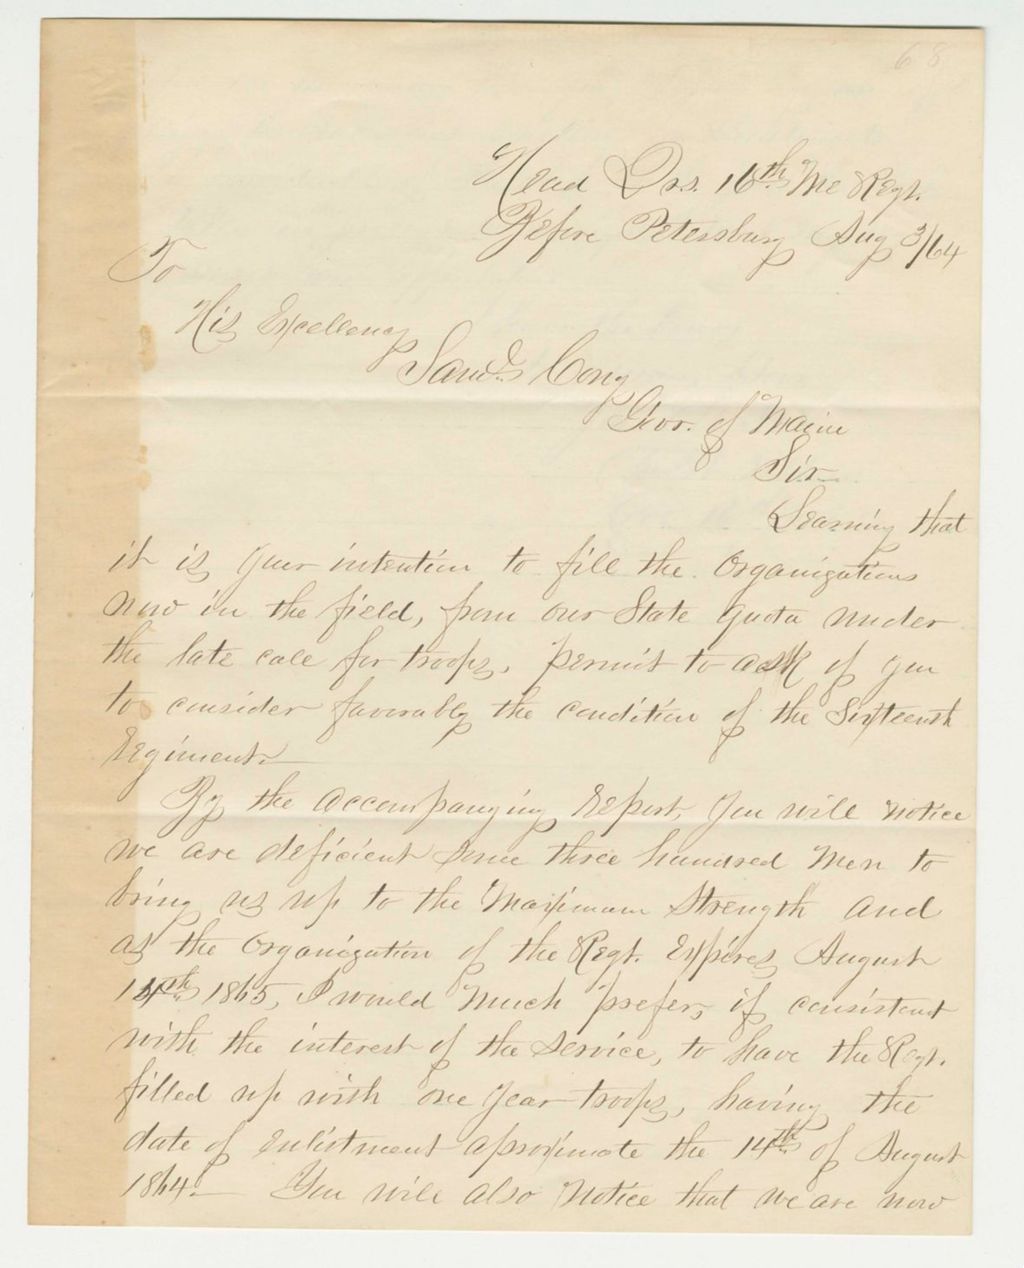 68
Head Qrs. 16th Me Regt.
Before Petersburg Aug 3/64
To
His Excellency
Saml. Cony
Gov. of Maine
Sir
Learning that
it is your intention to fill the Organizations
now in the field, from our State quota under
the late call for troops, permit to ask of you
to consider favorably the condition of the Sixteenth
Regiment.
By the accompanying report, you will notice
we are deficient some three hundred Men to
bring us up to the Maximum Strength and
as the Organization of the Regt. Expires August
14th 1865, I would much prefer, if consistent
with the interest of the Service, to have the Regt.
filled up with one year troops, having the
date of enlistment approximate the 14th of August
1864. You will also notice that we are now